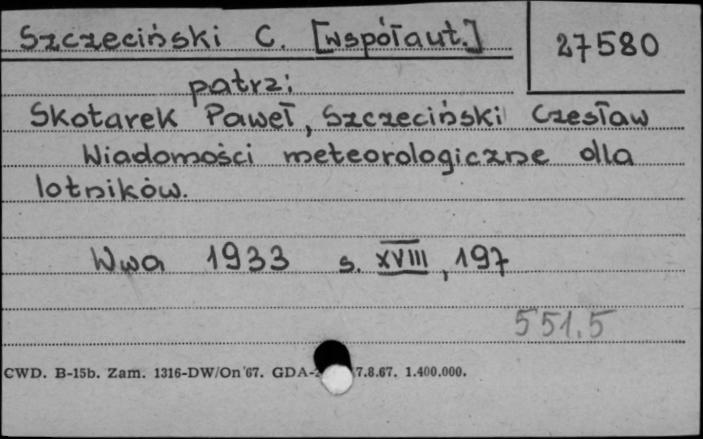 Szczeciński C. [współaut.]
27580
patrz:
Skotarek Paweł, Szczeciński Czesław
Wiadomości meteorologiczne dla
lotników.
Wwa 1933 s. XVIII, 197
551.5
CWD. B-15b. Zam. 1316-DW/On'67. GDA- 7.8.67. 1.400.000.